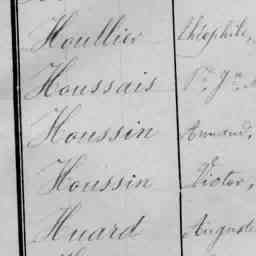 Houllier Théophile,
Houssais Pre Jn M
Houssin Armand,
Houssin Victor,
Huard Auguste